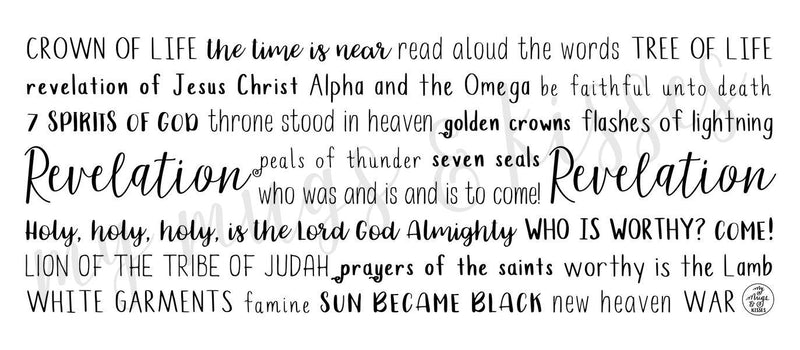 CROWN OF LIFE the time is near read aloud the words TREE OF LIFE
revelation of Jesus Christ Alpha and the Omega be faithful unto death
7 SPIRITS OF GOD throne stood in heaven golden crowns flashes of lightning
Revelation peals of thunder seven seals Revelation
who was and is and is to come!
Holy, holy, holy, is the Lord God Almighty WHO IS WORTHY? COME!
LION OF THE TRIBE OF JUDAH prayers of the saints worthy is the Lamb
WHITE GARMENTS famine SUN BECAME BLACK new heaven WAR
my mugs & kisses
my Mugs & KISSES